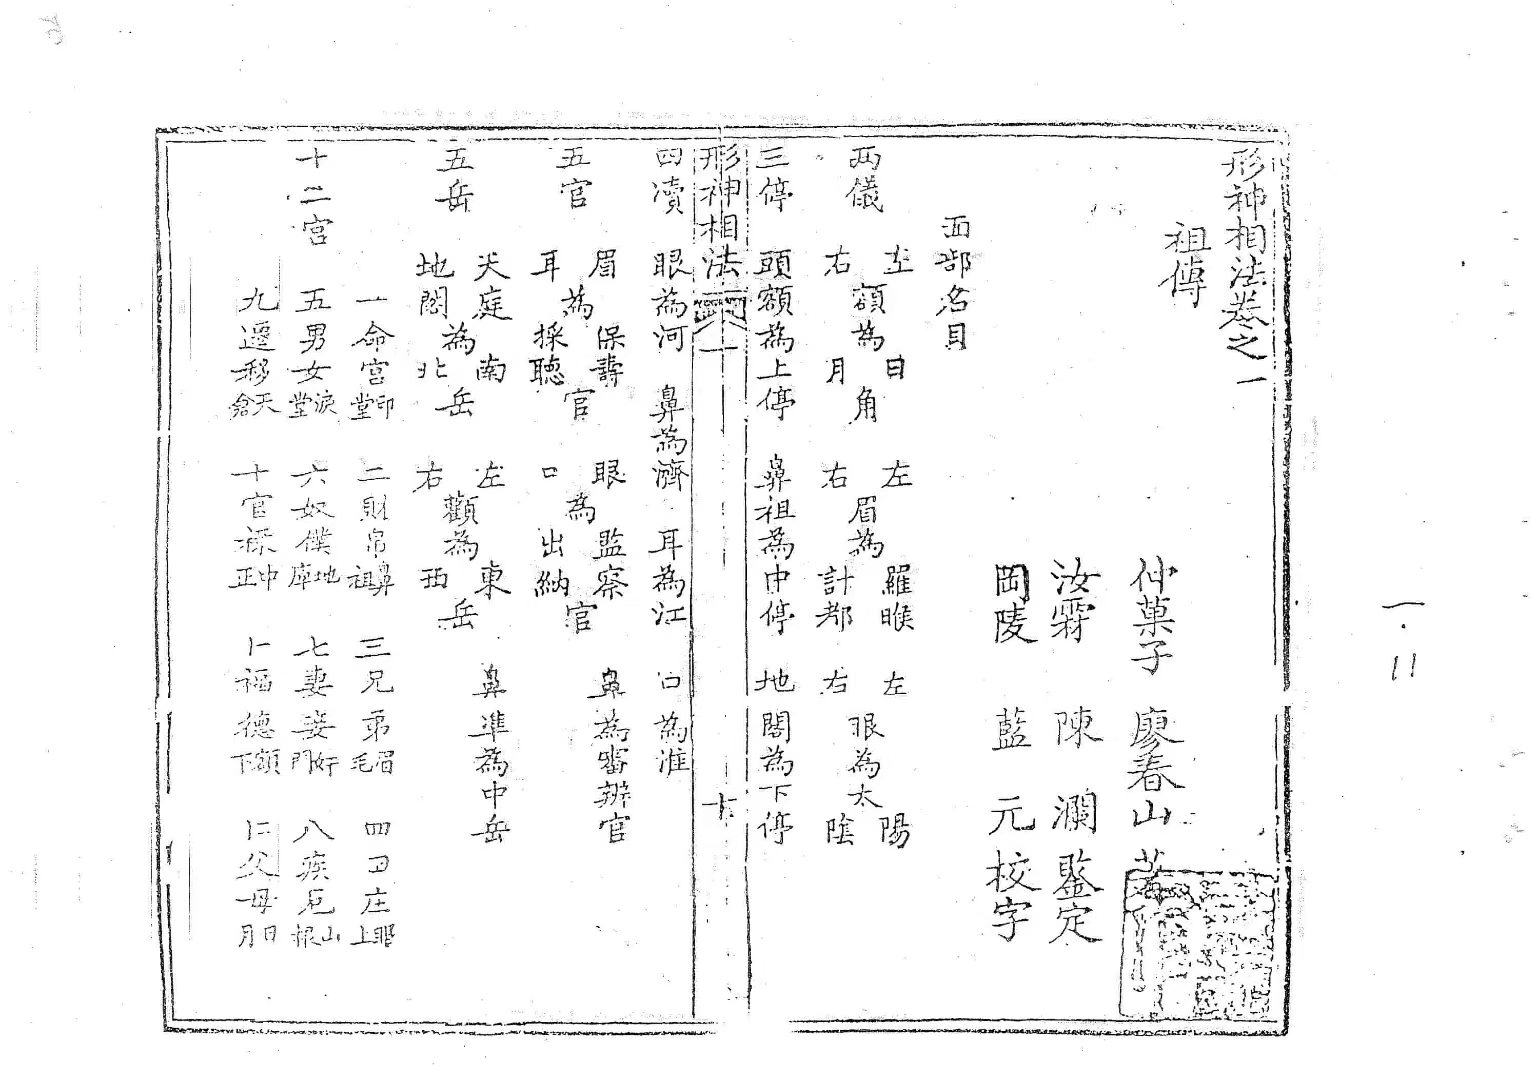 形神相法卷之一
祖傳
仲菓子 廖春山 著
汝霖 陳瀾 鑒定
岡陵 藍元 校字
面部名目
兩儀 左右額為日月角 左右眉為羅睺計都 左右眼為太陽陰
三停 頭額為上停 鼻祖為中停 地閣為下停
形神相法 一 十
四瀆 眼為河 鼻為濟 耳為江 口為淮
五官 眉為保壽官 眼為監察官 鼻為審辨官
耳為採聽官 口為出納官
五岳 天庭為南岳 左顴為東岳 鼻準為中岳
地閣為北岳 右顴為西岳
十二宮 一命宮印堂 二財帛鼻祖 三兄弟眉毛 四田庄眼上
五男女淚堂 六奴僕地庫 七妻妾奸門 八疾厄山根
九遷移天倉 十官祿中正 十一福德額下 十二父母日月
一.11